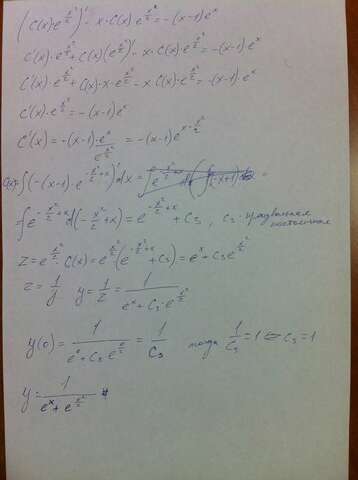 (C(x)·e^{x²/2})' - x·C(x)·e^{x²/2} = -(x-1)e^x
C'(x)·e^{x²/2} + C(x)(e^{x²/2})' - x·C(x)·e^{x²/2} = -(x-1)·e^x
C'(x)·e^{x²/2} + C(x)·x·e^{x²/2} - x C(x)·e^{x²/2} = -(x-1)·e^x
C'(x)·e^{x²/2} = -(x-1)e^x
C'(x) = -(x-1)·e^x / e^{x²/2} = -(x-1)e^{x-x²/2}
C(x) = ∫(-(x-1)·e^{-x²/2+x})dx =
∫e^{-x²/2+x} d(-x²/2+x) = e^{-x²/2+x} + C₃, C₃-произвольная постоянная
z = e^{x²/2}·C(x) = e^{x²/2}(e^{-x²/2+x} + C₃) = e^x + C₃e^{x²/2}
z = 1/y. y = 1/z = 1/(e^x + C₃·e^{x²/2})
y(0) = 1/(e^0 + C₃ e^{0/2}) = 1/C₃ тогда 1/C₃ = 1 <=> C₃ = 1
y = 1/(e^x + e^{x²/2})